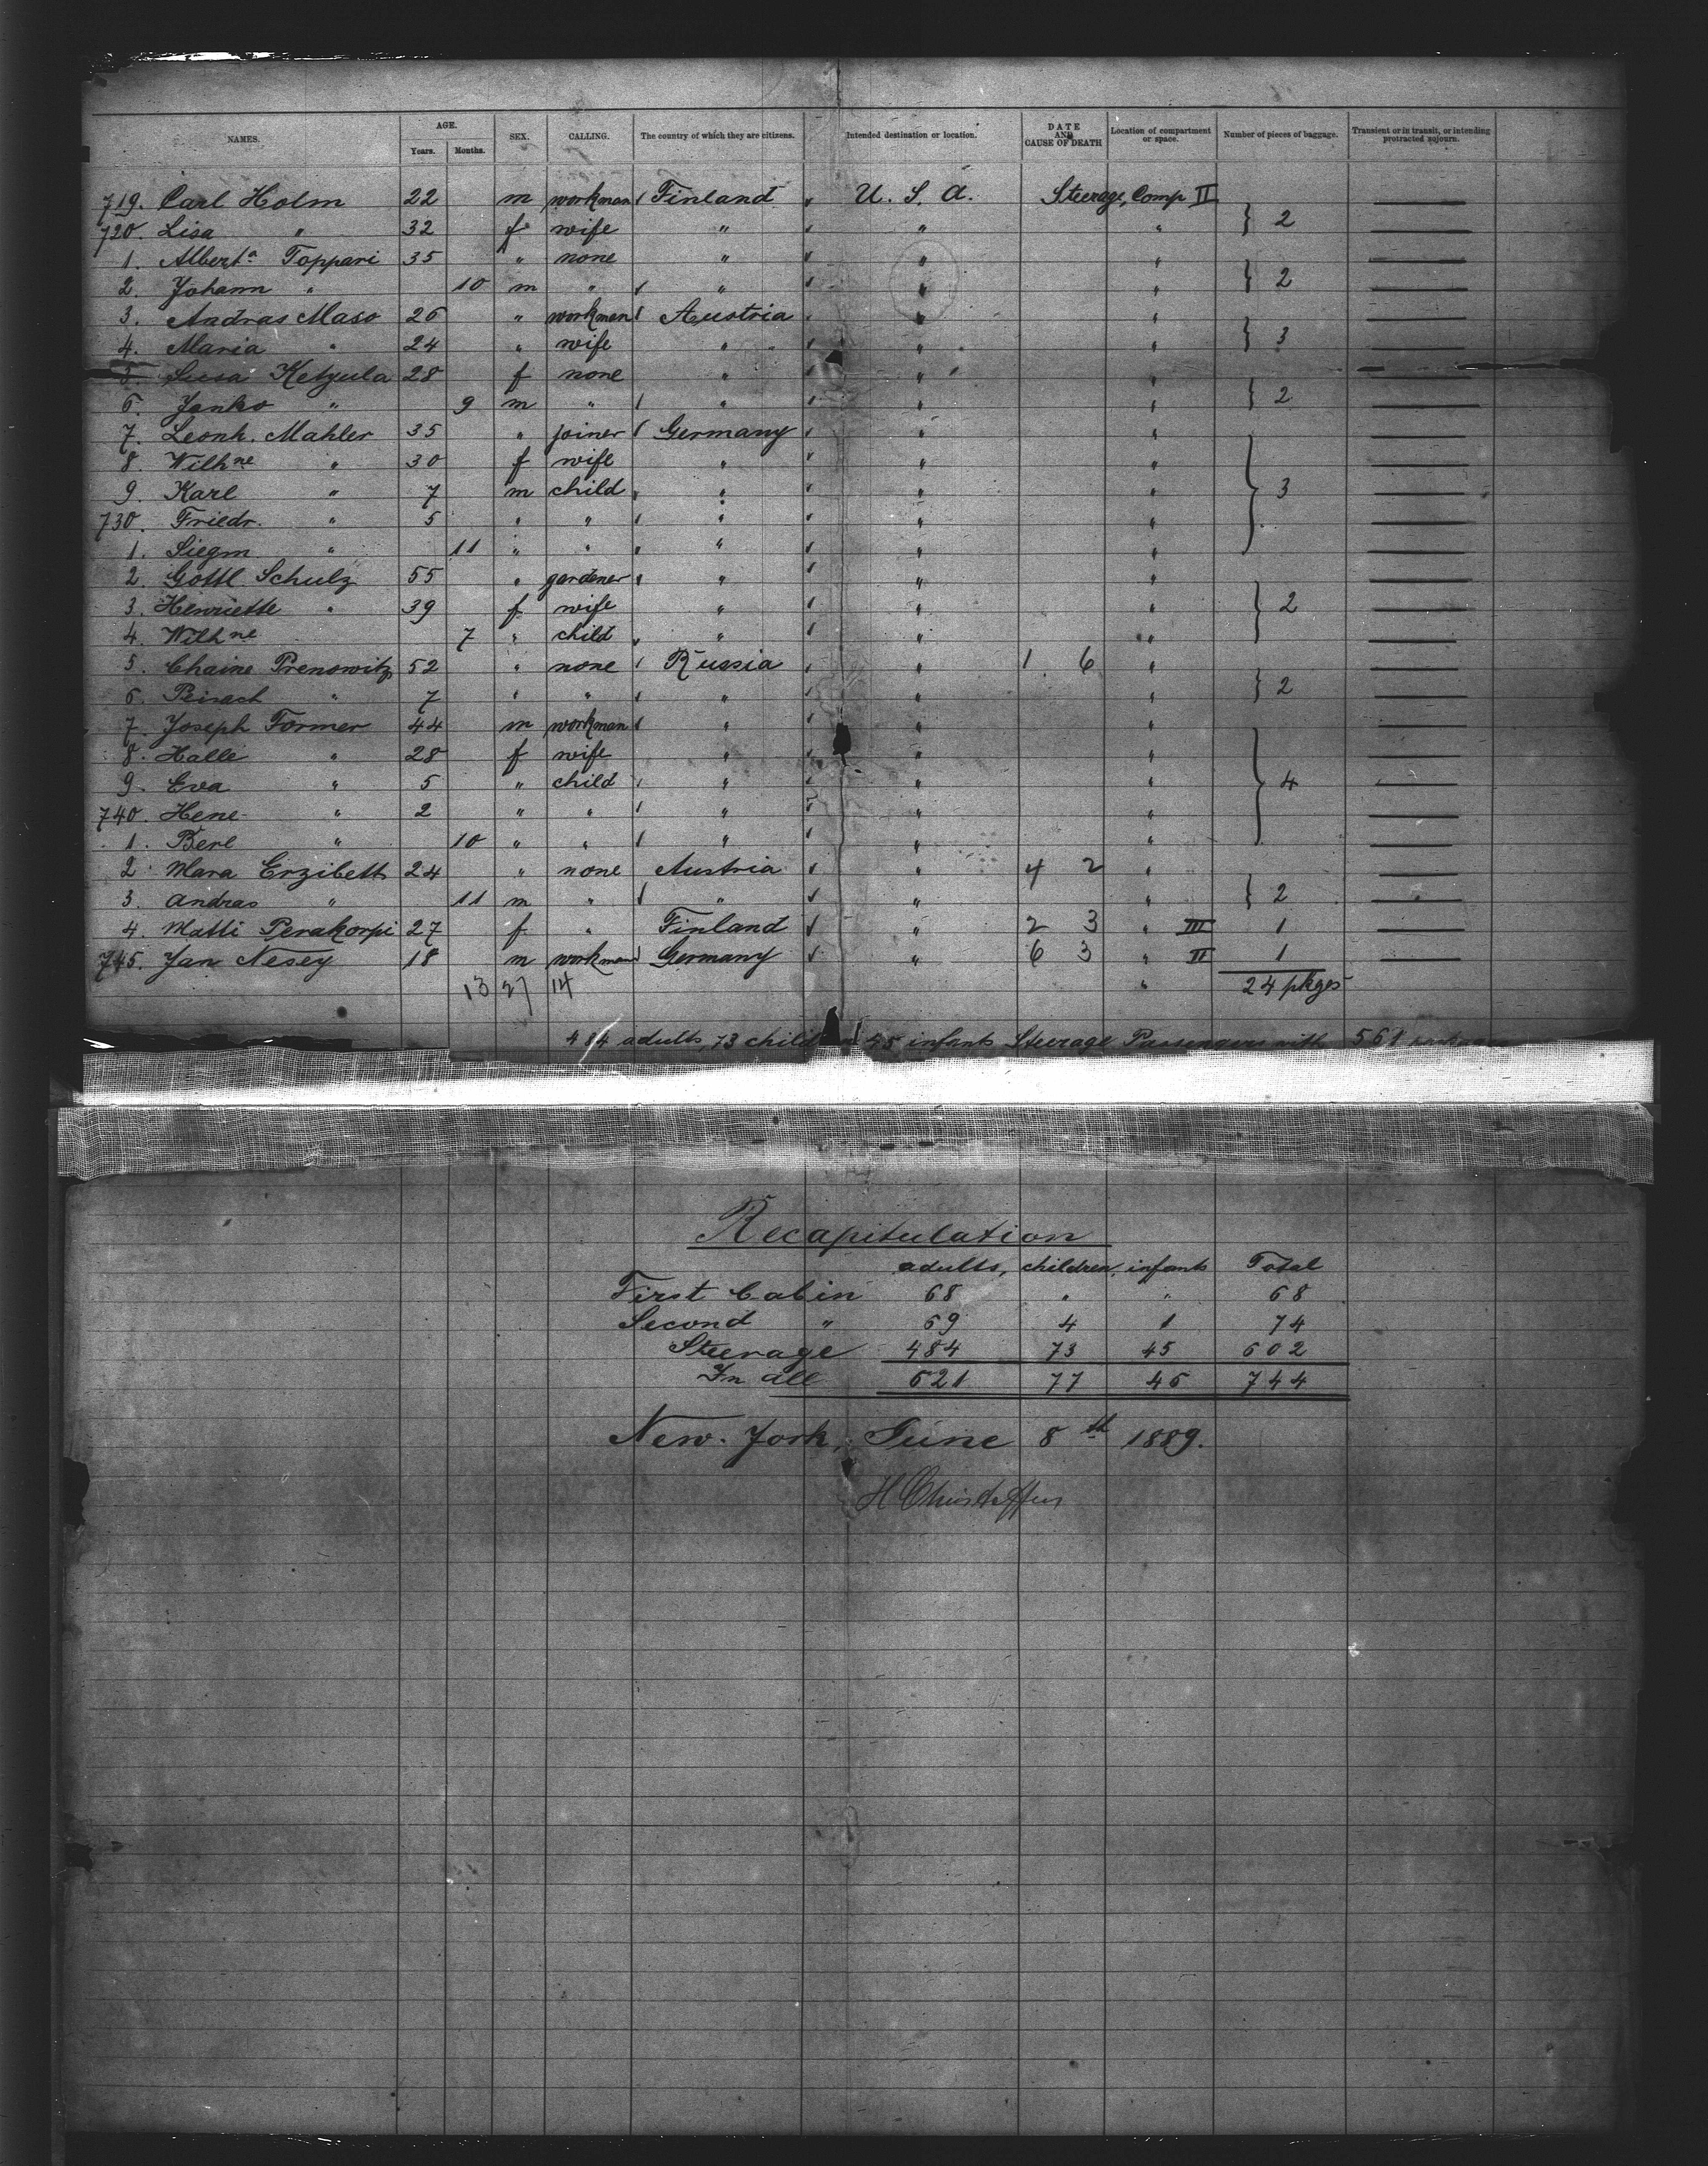 NAMES. AGE. Years. Months. SEX. CALLING. The country of which they are citizens. Intended destination or location. DATE AND CAUSE OF DEATH Location of compartment or space. Number of pieces of baggage. Transient or in transit, or intending protracted sojourn.
719. Carl Holm 22 m workman Finland U. S. A. Steerage, Comp II
720. Lisa " 32 f wife " " " } 2
1. Albert a Toppari 35 " none " " "
2. Johann " 10 m " " " " } 2
3. Andras Maso 26 " workman Austria " "
4. Maria " 24 " wife " " " } 3
5. Susa Ketzula 28 f none " " "
6. Janko " 9 m " " " " } 2
7. Leonh. Mahler 35 " joiner Germany " "
8. Wilhne " 30 f wife " " "
9. Karl " 7 m child " " " } 3
730. Friedr. " 5 " " " " "
1. Siegm " 11 " " " " "
2. Gottl Schulz 55 " gardener " " "
3. Henriette " 39 f wife " " " } 2
4. Wilhne 7 " child " " "
5. Chaine Prenowitz 52 " none Russia " 1 6 "
6. Peisach " 7 " " " " " } 2
7. Joseph Former 44 m workman " " "
8. Halle " 28 f wife " " "
9. Eva " 5 " child " " " } 4
740. Hene " 2 " " " " "
1. Berl " 10 " " " " "
2 Mara Erzibeth 24 " none Austria " 4 2 "
3. Andras " 11 m " " " " } 2
4. Matti Perakorpi 27 f " Finland " 2 3 " III 1
745. Jan Nesey 18 m workman Germany " 6 3 " II 1
13 27 14 " 24 pkges
484 adults, 73 child 45 infants Steerage Passengers with 561
Recapitulation
adults, children, infants Total
First Cabin 68 " " 68
Second " 69 4 1 74
Steerage 484 73 45 602
In all 621 77 46 744
New-York, June 8th 1889.